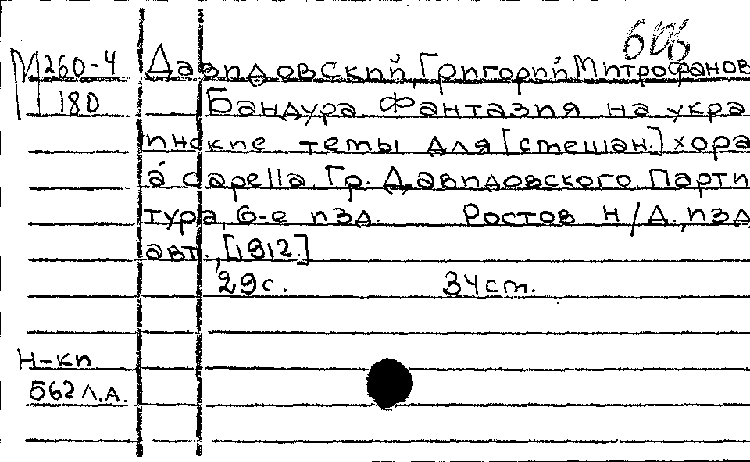 М260-4
180
Давидовский, Григорий Митрофанов
Бандура. Фантазия на укра
инские темы для [смешан.] хора
а́ capella. Гр. Давидовского. Парти
тура, 6-е изд. Ростов н/Д., изд.
авт., [1912.]
29 с. 34 см.
Н-кп
562 л.д.